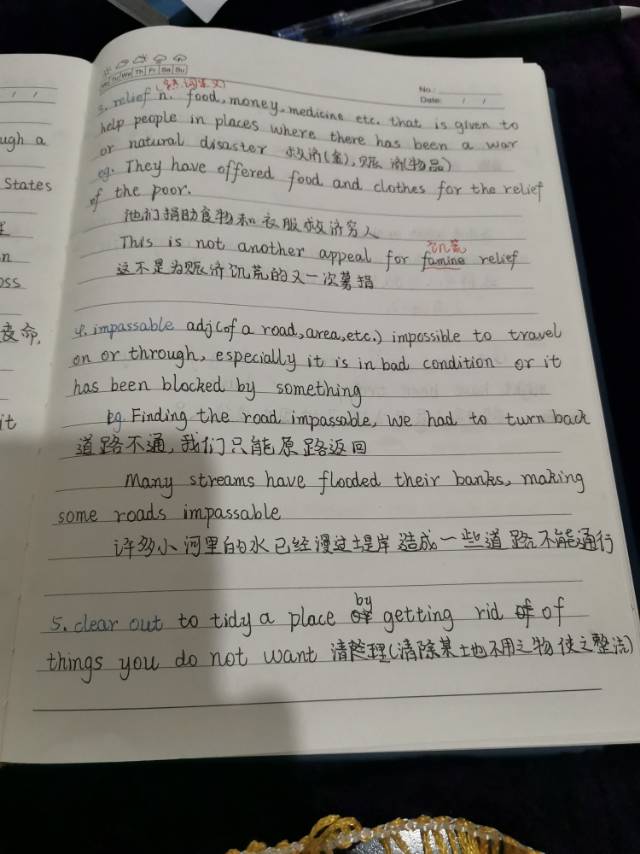 ugh a
States
n
oss
it
Th Fr Sa Su
No.:
Date: / /
(熟词生义)
3. relief n. food, money, medicine etc. that is given to
help people in places where there has been a war
or natural disaster 救济(金), 赈济(物品)
eg. They have offered food and clothes for the relief
of the poor.
他们捐助食物和衣服救济穷人
饥荒
This is not another appeal for famine relief
这不是为赈济饥荒的又一次募捐
4. impassable adj (of a road, area, etc.) impossible to travel
on or through, especially it is in bad condition or it
has been blocked by something
Eg. Finding the road impassable, we had to turn back
道路不通,我们只能原路返回
Many streams have flooded their banks, making
some roads impassable
许多小河里的水已经漫过堤岸造成一些道路不能通行
by
5. clear out to tidy a place getting rid of
things you do not want 清理(清除某地不用之物使之整洁)